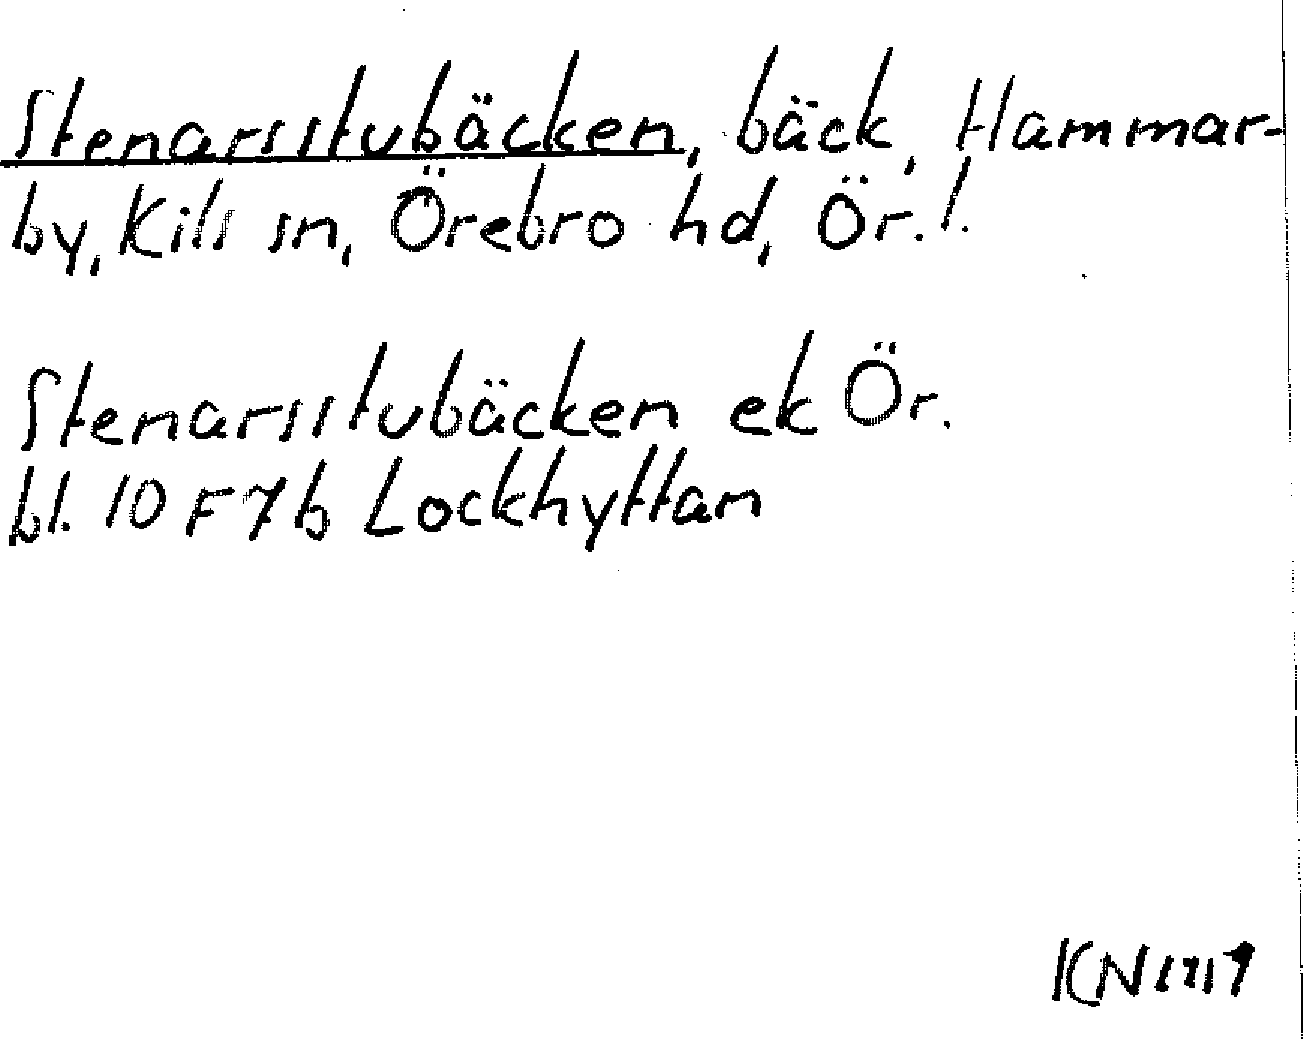 Stenarsstubäcken, bäck, Hammar-
by, Kils sn, Örebro hd, Ör. l.
Stenarsstubäcken ek Ör.
bl. 10 F 7 b Lockhyttan